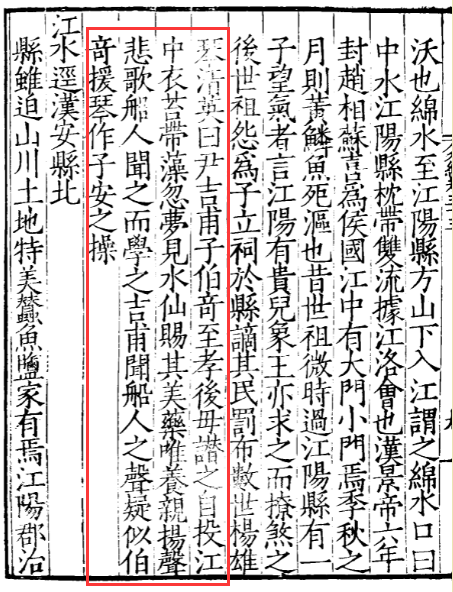 沃也綿水至江陽縣方山下入江謂之綿水口曰
中水江陽縣枕帶雙流據江洛會也漢景帝六年
封趙相蘇嘉爲侯國江中有大門小門焉季秋之
月則黃鱗魚死漚也昔世祖微時過江陽縣有一
子望氣者言江陽有貴兒象王亦求之而撩煞之
後世祖怨爲子立祠於縣謫其民罰布數世楊雄
琴清英曰尹吉甫子伯竒至孝後母譖之自投江
中衣苔帶藻忽夢見水仙賜其美藥唯養親揚聲
悲歌船人聞之而學之吉甫聞船人之聲疑似伯
竒援琴作子安之操
江水逕漢安縣北
縣雖迫山川土地特美蠶魚鹽家有焉江陽郡治